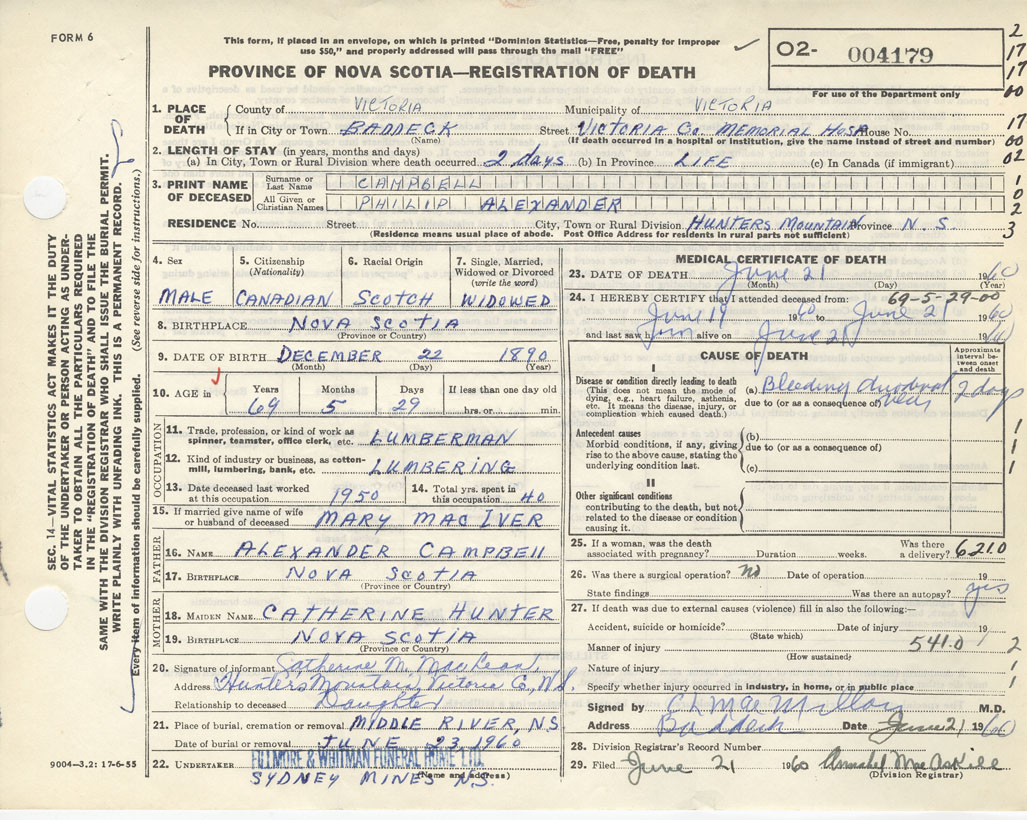 FORM 6
This form, if placed in an envelope, on which is printed "Dominion Statistics—Free, penalty for improper
use $50," and properly addressed will pass through the mail "FREE"
PROVINCE OF NOVA SCOTIA—REGISTRATION OF DEATH
02- 004179
For use of the Department only
2
17
17
00
17
00
02
1
0
2
3
1. PLACE OF DEATH
County of VICTORIA Municipality of VICTORIA
If in City or Town BADDECK Street VICTORIA Co. MEMORIAL HOSP House No.
(Name) (If death occurred in a hospital or institution, give the name instead of street and number)
2. LENGTH OF STAY (in years, months and days)
(a) In City, Town or Rural Division where death occurred 2 days (b) In Province LIFE (c) In Canada (if immigrant)
3. PRINT NAME OF DECEASED
Surname or Last Name CAMPBELL
All Given or Christian Names PHILIP ALEXANDER
RESIDENCE No. Street City, Town or Rural Division HUNTERS MOUNTAIN Province N. S.
(Residence means usual place of abode. Post Office Address for residents in rural parts not sufficient)
4. Sex MALE
5. Citizenship (Nationality) CANADIAN
6. Racial Origin SCOTCH
7. Single, Married, Widowed or Divorced (write the word) WIDOWED
8. BIRTHPLACE NOVA SCOTIA
(Province or Country)
9. DATE OF BIRTH DECEMBER 22 1890
(Month) (Day) (Year)
10. AGE in
Years Months Days If less than one day old
69 5 29 hrs. or min.
OCCUPATION
11. Trade, profession, or kind of work as spinner, teamster, office clerk, etc. LUMBERMAN
12. Kind of industry or business, as cotton-mill, lumbering, bank, etc. LUMBERING
13. Date deceased last worked at this occupation 1950
14. Total yrs. spent in this occupation 40
15. If married give name of wife or husband of deceased MARY MAC IVER
FATHER
16. NAME ALEXANDER CAMPBELL
17. BIRTHPLACE NOVA SCOTIA
(Province or Country)
MOTHER
18. MAIDEN NAME CATHERINE HUNTER
19. BIRTHPLACE NOVA SCOTIA
(Province or Country)
20. Signature of informant Catherine M. MacLeod,
Address Hunters Mountain, Victoria Co., N.S.
Relationship to deceased Daughter
21. Place of burial, cremation or removal MIDDLE RIVER, N.S
Date of burial or removal JUNE 23, 1960
22. UNDERTAKER FILLMORE & WHITMAN FUNERAL HOME LTD.
SYDNEY MINES N.S.
(Name and address)
9004—3.2: 17-6-55
MEDICAL CERTIFICATE OF DEATH
23. DATE OF DEATH June 21 1960
(Month) (Day) (Year)
69-5-29-00
24. I HEREBY CERTIFY that I attended deceased from:
June 19 1960 to June 21 1960
and last saw him alive on June 21 1960
CAUSE OF DEATH
Approximate interval between onset and death
I
Disease or condition directly leading to death
(This does not mean the mode of dying, e.g., heart failure, asthenia, etc. It means the disease, injury, or complication which caused death.)
(a) Bleeding duodenal ulcer 2 days
due to (or as a consequence of)
Antecedent causes
Morbid conditions, if any, giving rise to the above cause, stating the underlying condition last.
(b)
due to (or as a consequence of)
(c)
1
1
1
II
Other significant conditions
contributing to the death, but not related to the disease or condition causing it.
25. If a woman, was the death associated with pregnancy? Duration weeks. Was there a delivery? 6210
26. Was there a surgical operation? no Date of operation 19
State findings Was there an autopsy? yes
27. If death was due to external causes (violence) fill in also the following:—
Accident, suicide or homicide? Date of injury 19
(State which)
Manner of injury 541.0
(How sustained)
Nature of injury
Specify whether injury occurred in industry, in home, or in public place
1
2
1
1
Signed by C L MacMillan M.D.
Address Baddeck Date June 21 1960
28. Division Registrar's Record Number
29. Filed June 21 1960 Annabel MacAskill
(Division Registrar)
SEC. 14—VITAL STATISTICS ACT MAKES IT THE DUTY
OF THE UNDERTAKER OR PERSON ACTING AS UNDER-
TAKER TO OBTAIN ALL THE PARTICULARS REQUIRED
IN THE "REGISTRATION OF DEATH" AND TO FILE THE
SAME WITH THE DIVISION REGISTRAR WHO SHALL ISSUE THE BURIAL PERMIT.
WRITE PLAINLY WITH UNFADING INK. THIS IS A PERMANENT RECORD.
Every item of information should be carefully supplied. (See reverse side for instructions.)